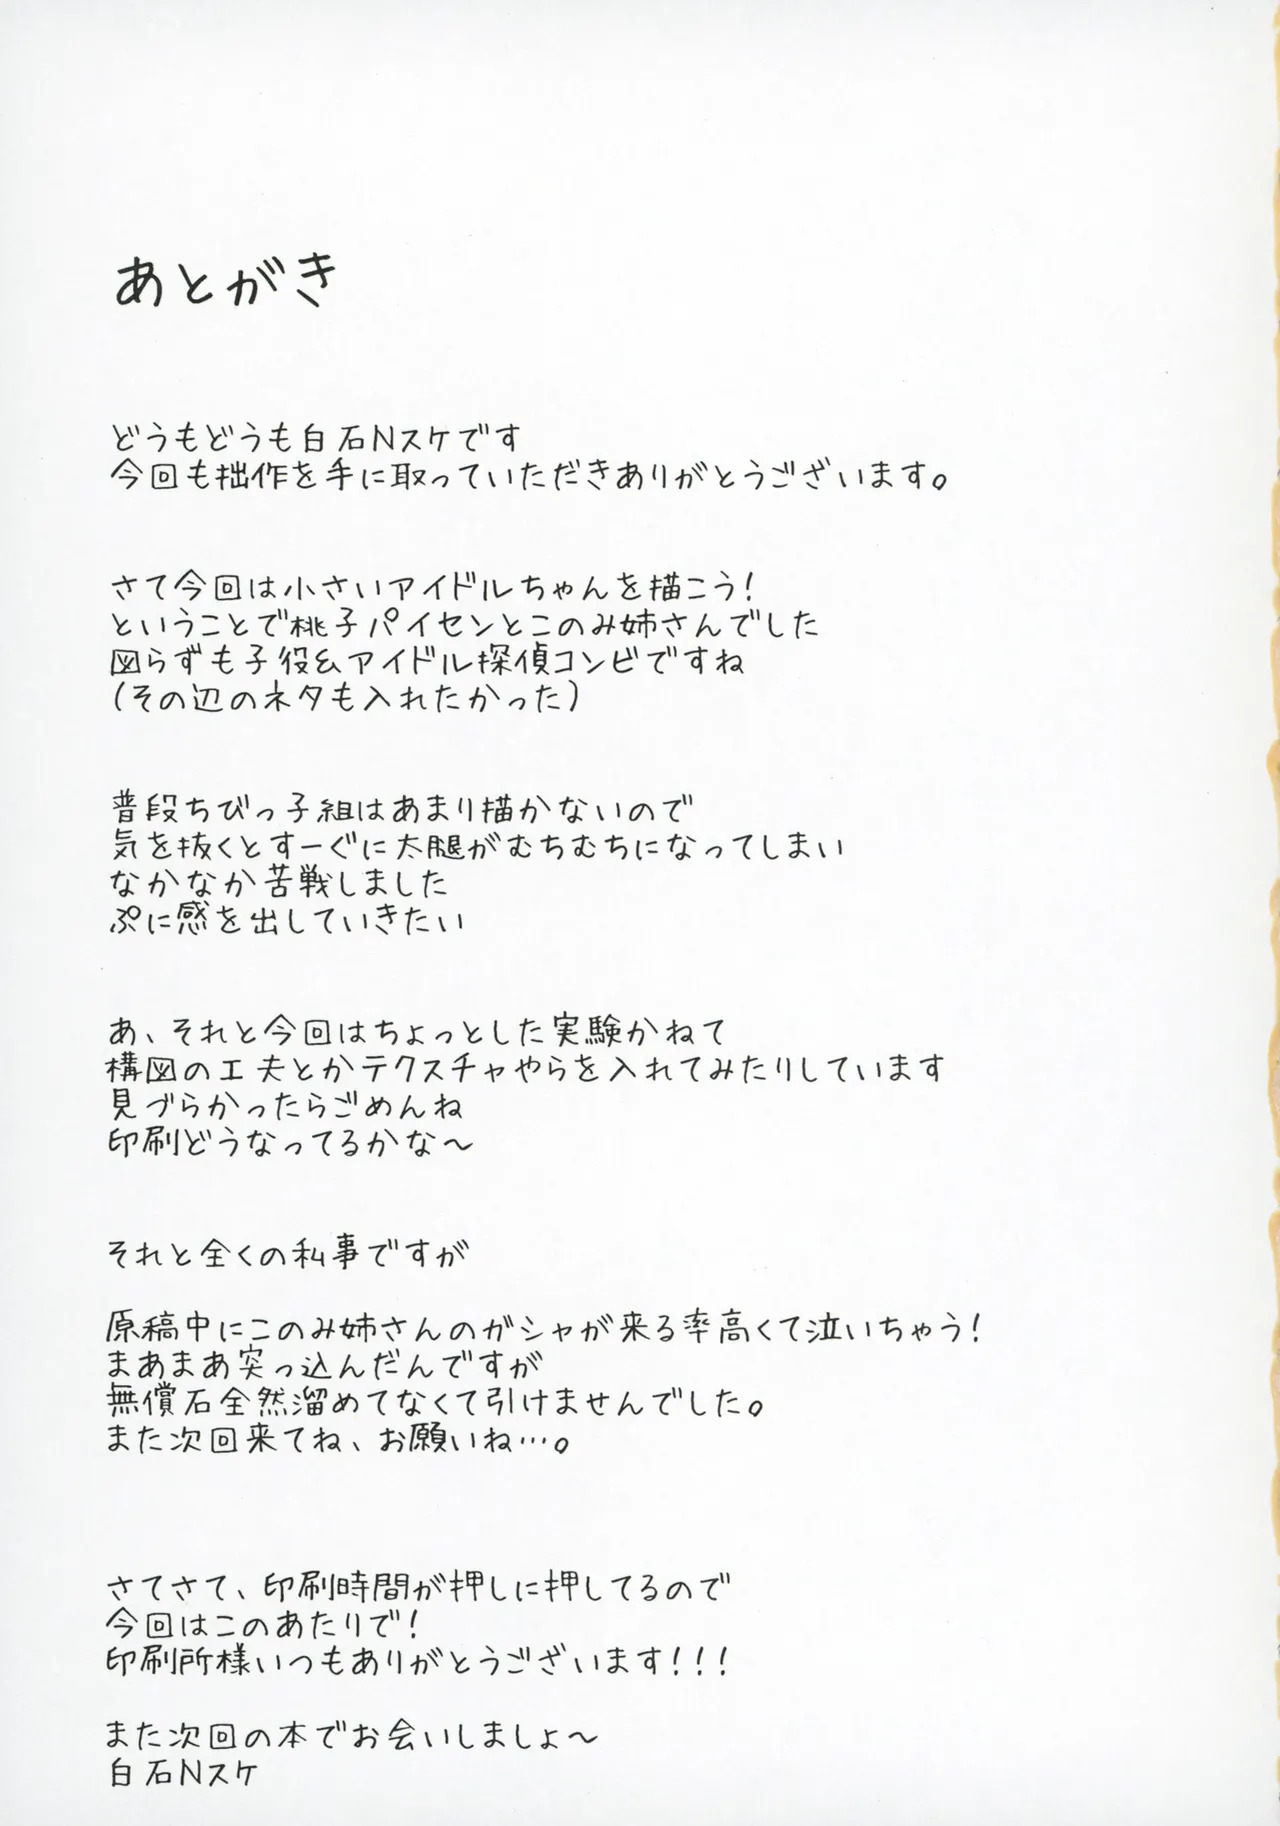 あとがき
どうもどうも白石Nスケです
今回も拙作を手に取っていただきありがとうございます。
さて今回は小さいアイドルちゃんを描こう!
ということで桃子パイセンとこのみ姉さんでした
図らずも子役&アイドル探偵コンビですね
(その辺のネタも入れたかった)
普段ちびっ子組はあまり描かないので
気を抜くとすーぐに太腿がむちむちになってしまい
なかなか苦戦しました
ぷに感を出していきたい
あ、それと今回はちょっとした実験かねて
構図の工夫とかテクスチャやらを入れてみたりしています
見づらかったらごめんね
印刷どうなってるかな〜
それと全くの私事ですが
原稿中にこのみ姉さんのガシャが来る率高くて泣いちゃう!
まあまあ突っ込んだんですが
無償石全然溜めてなくて引けませんでした。
また次回来てね、お願いね…。
さてさて、印刷時間が押しに押してるので
今回はこのあたりで!
印刷所様いつもありがとうございます!!!
また次回の本でお会いしましょ〜
白石Nスケ